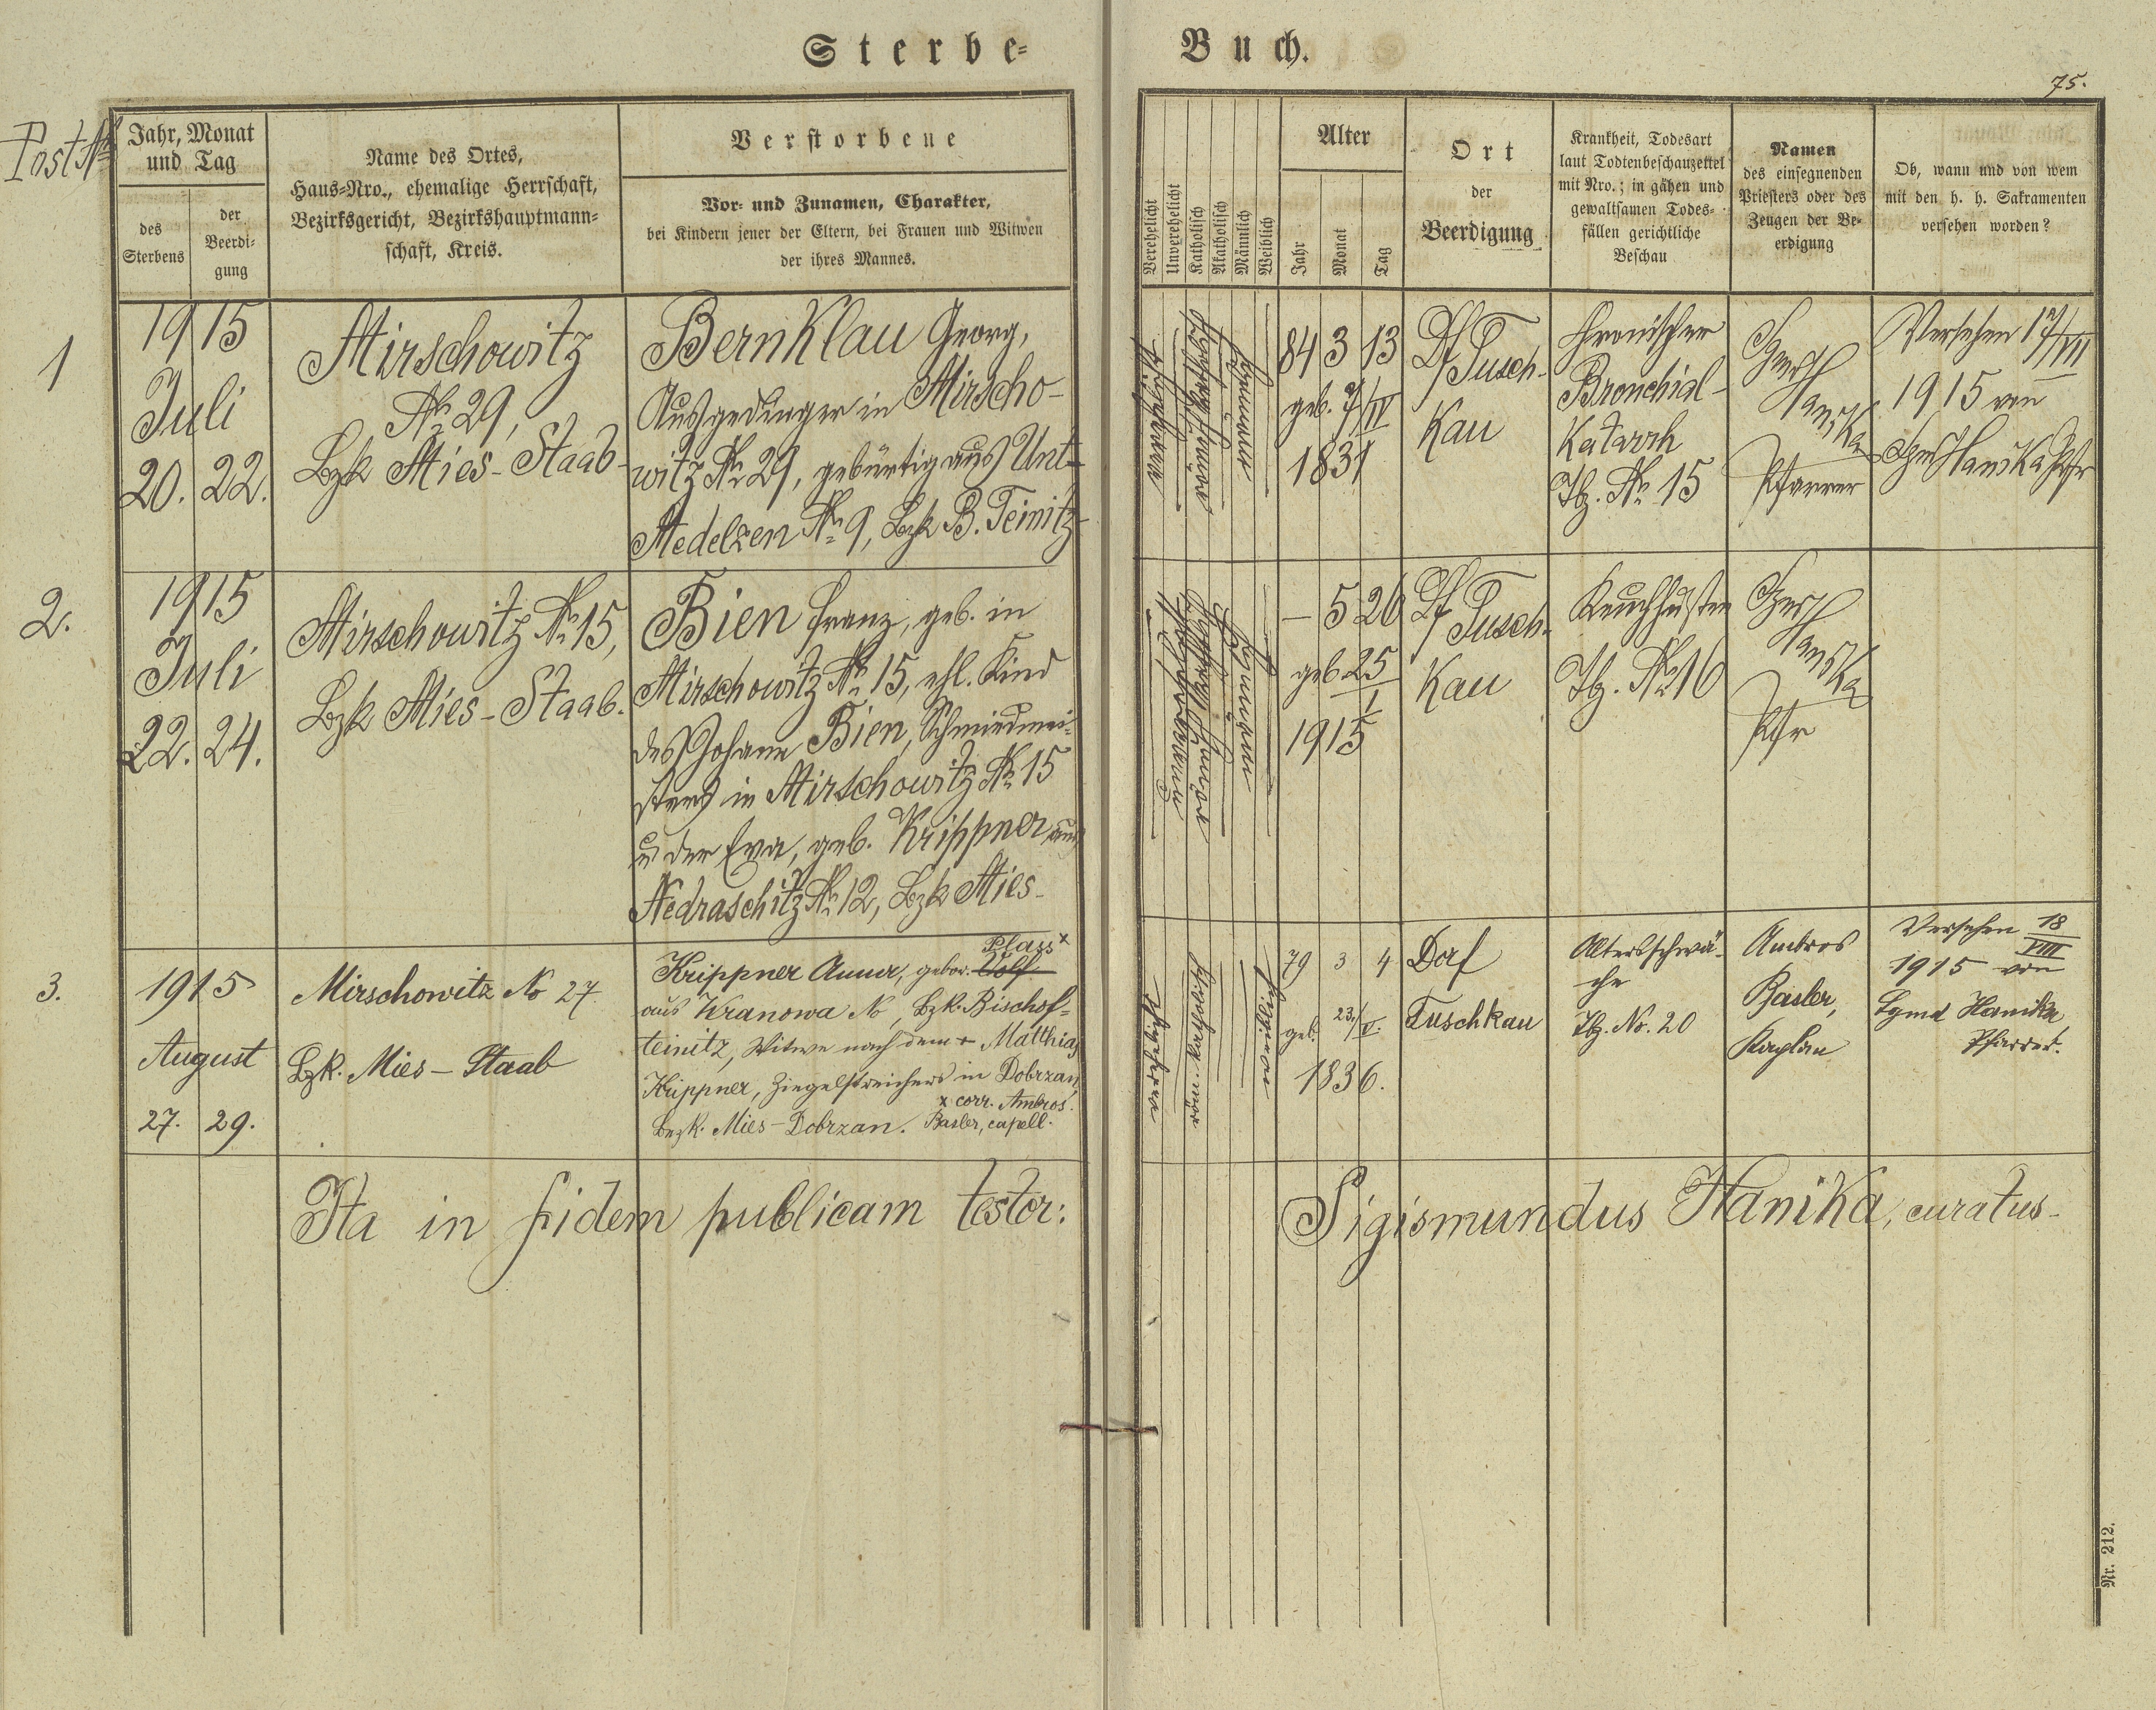 Sterbe-
Buch.
75.
Post №
Jahr, Monat
und Tag
des
Sterbens
der
Beerdi-
gung
Name des Ortes,
Haus-Nro., ehemalige Herrschaft,
Bezirksgericht, Bezirkshauptmann-
schaft, Kreis.
Verstorbene
Vor- und Zunamen, Charakter,
bei Kindern jener der Eltern, bei Frauen und Witwen
der ihres Mannes.
Verehelicht
Unverehelicht
Katholisch
Akatholisch
Männlich
Weiblich
Alter
Jahr
Monat
Tag
Ort
der
Beerdigung
Krankheit, Todesart
laut Todtenbeschauzettel
mit Nro.; in gähen und
gewaltsamen Todes-
fällen gerichtliche
Beschau
Namen
des einsegnenden
Priesters oder des
Zeugen der Be-
erdigung
Ob, wann und von wem
mit den h. h. Sakramenten
versehen worden?
1
1915
Juli
20. 22.
Mirschowitz
№ 29,
Bzk Mies-Staab
Bernklau Georg,
Ausgedinger in Mirscho-
witz № 29, gebürtig aus Unt-
Medelzen № 9, Bzk B. Teinitz-
84 3 13
geb. 7/IV
1831
Df Tusch-
kau
Chronischer
Bronchial-
Katarrh
Tbz. № 15
Hanika
Pfarrer
Versehen 17/VII
1915 von
Hanika Pfr
2.
1915
Juli
22. 24.
Mirschowitz № 15,
Bzk Mies-Staab.
Bien Franz, geb. in
Mirschowitz № 15, ehl. Kind
des Johann Bien, Schmiedmei-
sters in Mirschowitz № 15
u der Eva, geb. Krippner aus
Nedraschitz № 12, Bzk Mies-
- 5 26
geb 25/1
1915
Df Tusch-
kau
Keuchhusten
Tbz. № 16
Hanika
Pfr
3.
1915
August
27. 29.
Mirschowitz No 27.
Bzk. Mies-Staab
Plass x
Krippner Anna, gebor. Wolf
aus Kranowa No , Bzk. Bischof-
teinitz, Witwe nach dem + Matthias
Krippner, Ziegelstreichers in Dobrzan,
x corr. Ambros
Bezk. Mies-Dobrzan. Basler, capell.
röm. kath.
79 3 4
geb. 23./V.
1836.
Dorf
Tuschkau
Altersschwä-
che
Tbz. No. 20
Ambros
Basler,
Kaplan
Versehen 18/VIII
1915 von
Sgmd Hanika
Pfarrer.
Ita in fidem publicam testor:
Sigismundus Hanika, curatus-
Nr. 212.